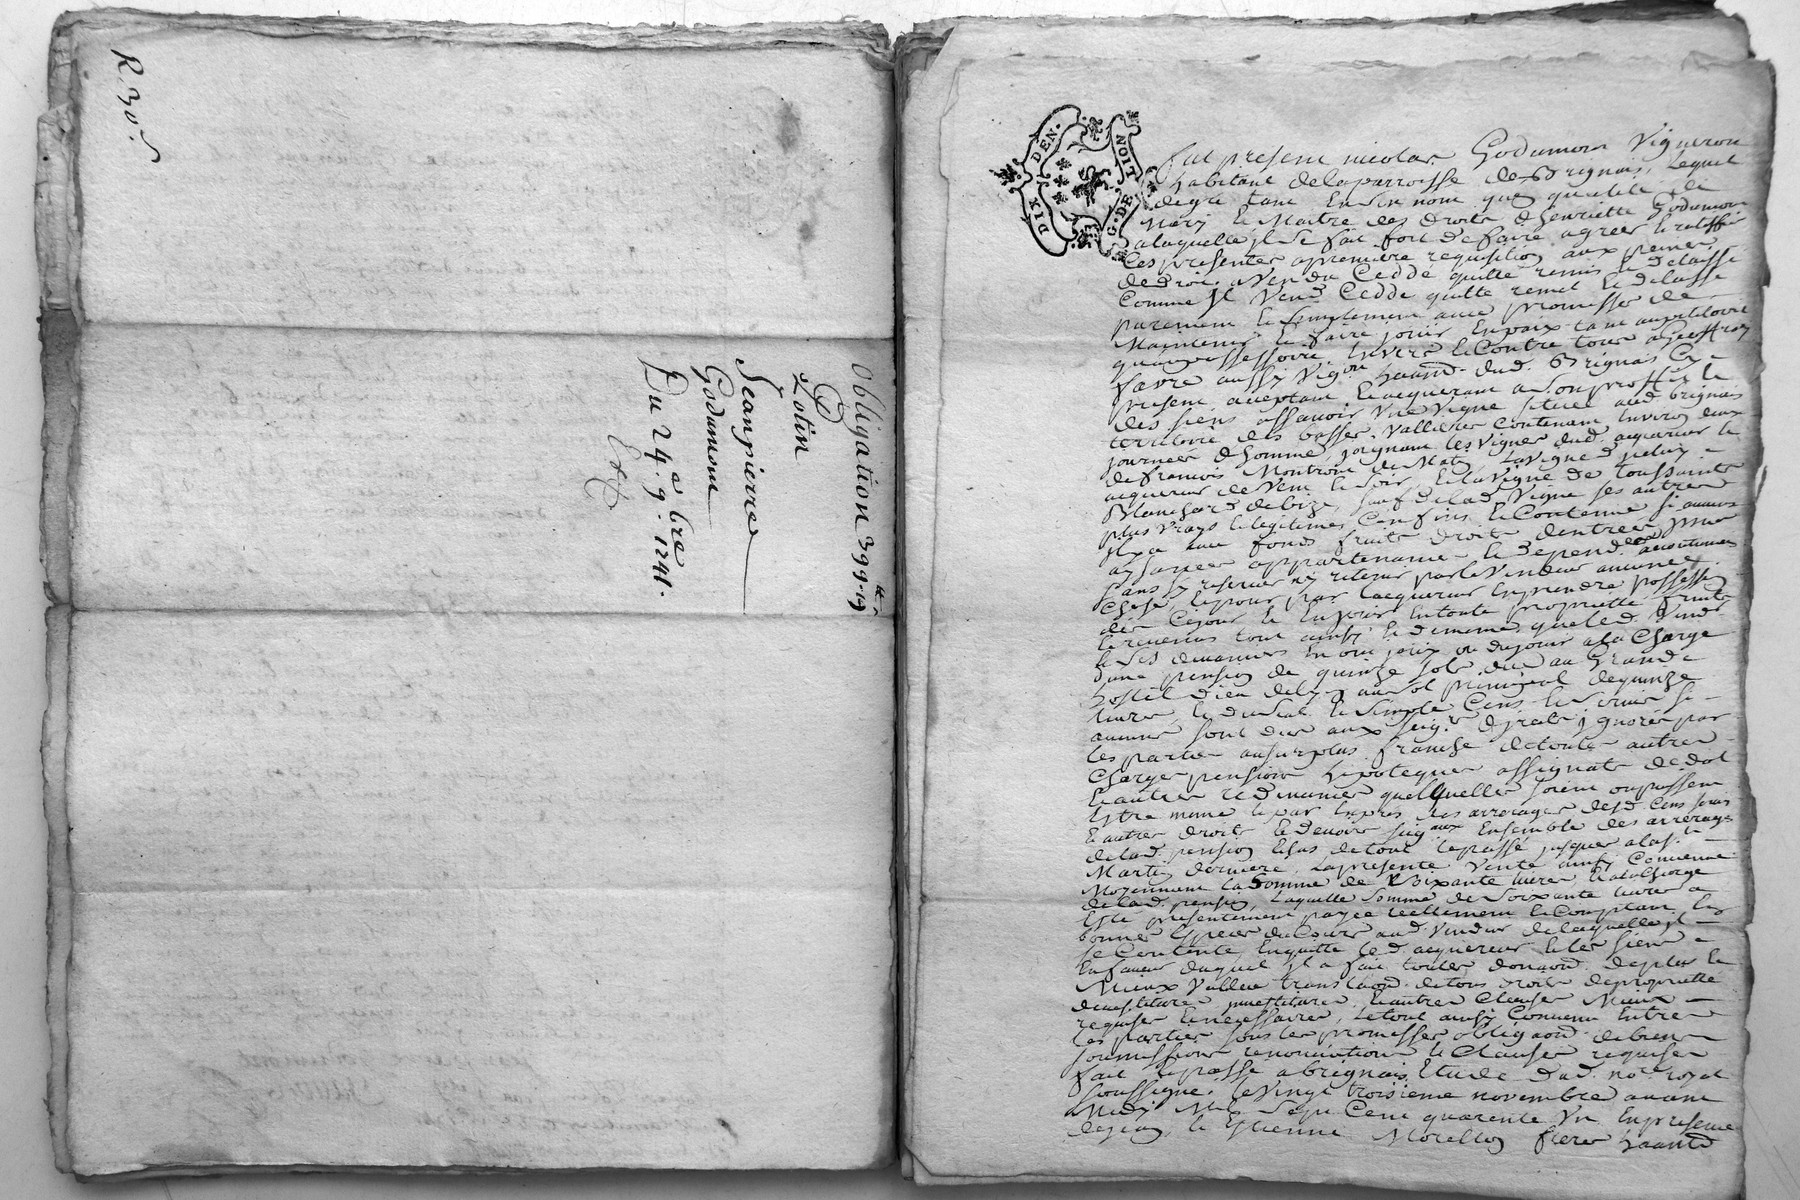 R. 30 s
Obligation 399 ₶ 19 s
P
Lotin
Jeanpierre
Godamont
Du 24e 9.bre 1741.
DIX DEN.
G. DE
LION
fut present nicolas Godamon Vigneron
habitant de la parroisse de Brignais, Lequel
de gre tant En son nom que qualité de
Mary & Maitre des droits d'henriette Godamon
a laquelle Jl Se fait fort de faire agreer & ratiffier
Ces presentes a premiere requisition aux peines
de droit, a Vendu Ceddé quitté remis & delaissé
Comme Jl Vend Cedde quitte remet & delaisse
purement & Simplement avec promesse de
Maintenir & faire jouir En paix tant au petitoire
que possessoire, Envers & Contre tous a Geoffroy
favre aussy Vigon habant dud. Brignais Cy
present acceptant & acquerant a Son proffit &
des siens assavoir Une Vigne Située aud brignais
territoire des basses Vallieres Contenant Environ deux
journées d'homme, joignant les Vignes dud. acquereur &
de francois Montrom de Matin, La Vigne d
acquereur de Vent & Soir, & la Vigne de toussaints
Blanchard de bize, Sauf de lad. Vigne ses autres
plus Vrays & legitimes Confins & Contenue si aucuns
Jl y a avec fonds fruits droits d'entrée
aysances appartenances & depend.ces accoutumées
Sans y reserver ny retenir par le Vendeur aucune
Chose, & pour par l'acquereur En prendre possession
dès Cejour & En jouir En toute propriette fruits
& revenus tout ainsy & de meme que led. Vendr
& Ses devanciers En ont jouy ou du jouir a la Charge
d'une pension de quinze Sols due au Grand
hostel Dieu de Lyon au Sol principal de quinze
livres, & du Seul & Simple Cens & Servis si
aucuns Sont dus aux Seigrs directs jgnorés par
les parties au Surplus franche de toutes autres
Charges pensions hipoteques assignats de dot
& autres redevances quelquelles soient ou puissent
Estre meme & par Expres des arrerages desd Cens Servis
& autres droits & devoirs Seigaux Ensemble des arrérages
de lad. pension Echus de tout le passé jusques a la St
Martin derniere, La presente Vente ainsy Convenue
Moyennant la Somme de Soixante livres & a la Charge
de lad. pension, Laquelle Somme de Soixante livres a
Esté presentement payée reellement & Comptant En
bonnes Especes du Cours aud Vendeur de laquelle Jl
se Contente, En quitte led acquereur & les siens
En faveur duquel Jl a fait toutes donaons de plus &
Mieux Vallue translaon de tous droits de proprietté
devestiture, jnvestiture, & autres Clauses Mieux
requises & necessaires, & tout ainsy Convenu Entre
les parties sous les promesses obligaons de biens
soumissions renonciations & Clauses requises
fait & passé a brignais Etude dud. nore royal
Soussigné, le Vingt troisieme novembre avant
Midy Mil Sept Cent quarente Un En presence
de jean, & Etienne Morellon freres habants